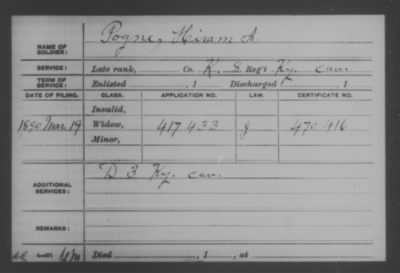 NAME OF SOLDIER: Pogue, Hiram A
SERVICE: Late rank, Co. K, 8 Reg't Ky. Cav.
TERM OF SERVICE: Enlisted , 1 Discharged , 1
DATE OF FILING. CLASS. APPLICATION NO. LAW. CERTIFICATE NO.
Invalid,
1890 Mar. 19 Widow, 417 433 g 470 416
Minor,
ADDITIONAL SERVICES: D 3 Ky. Cav.
REMARKS:
Died , 1 , at